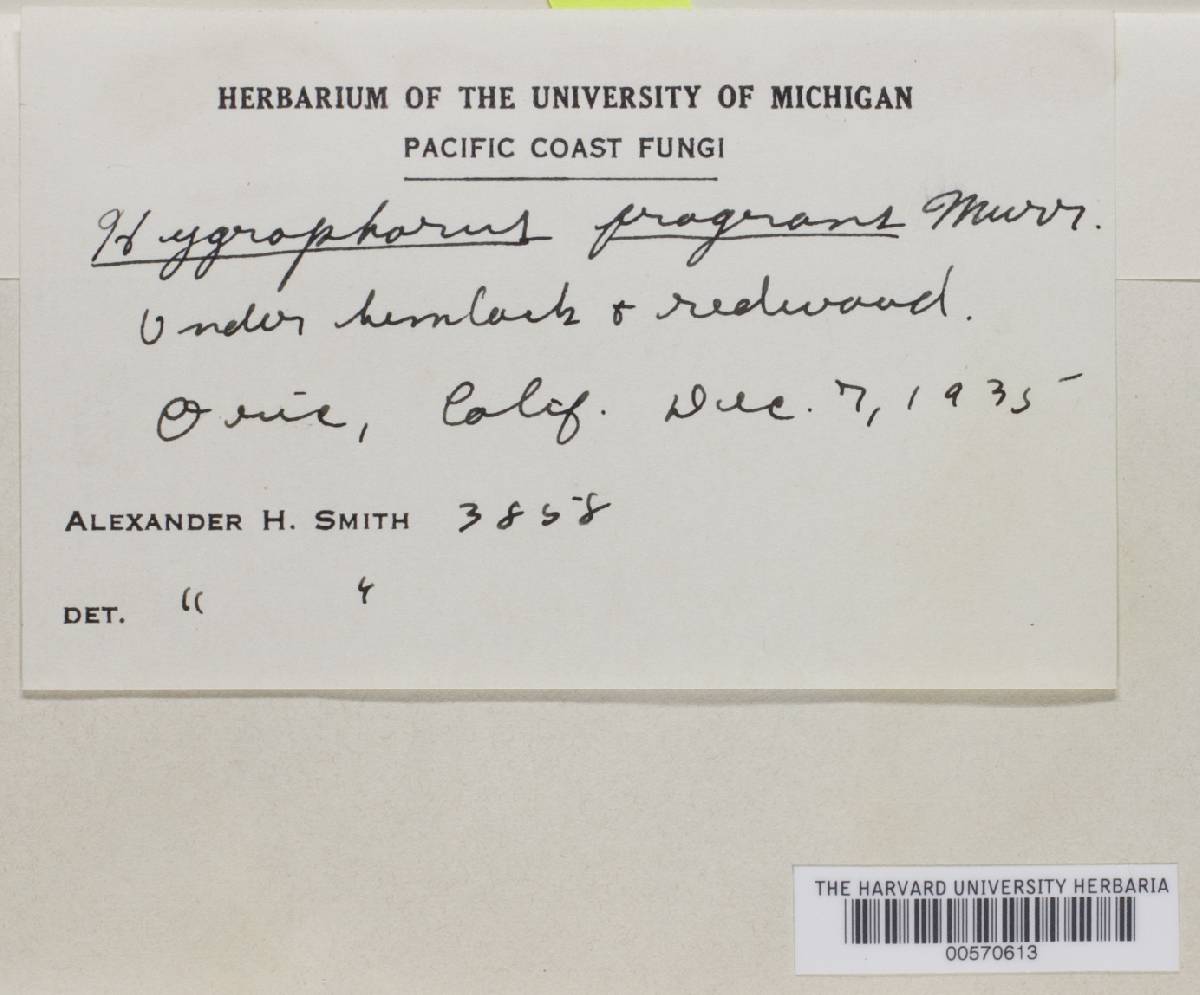 HERBARIUM OF THE UNIVERSITY OF MICHIGAN
PACIFIC COAST FUNGI
Hygrophorus fragrans Murr.
Under hemlock & redwood.
Oric, Calif. Dec. 7, 1935
ALEXANDER H. SMITH 3858
DET. " "
THE HARVARD UNIVERSITY HERBARIA
00570613